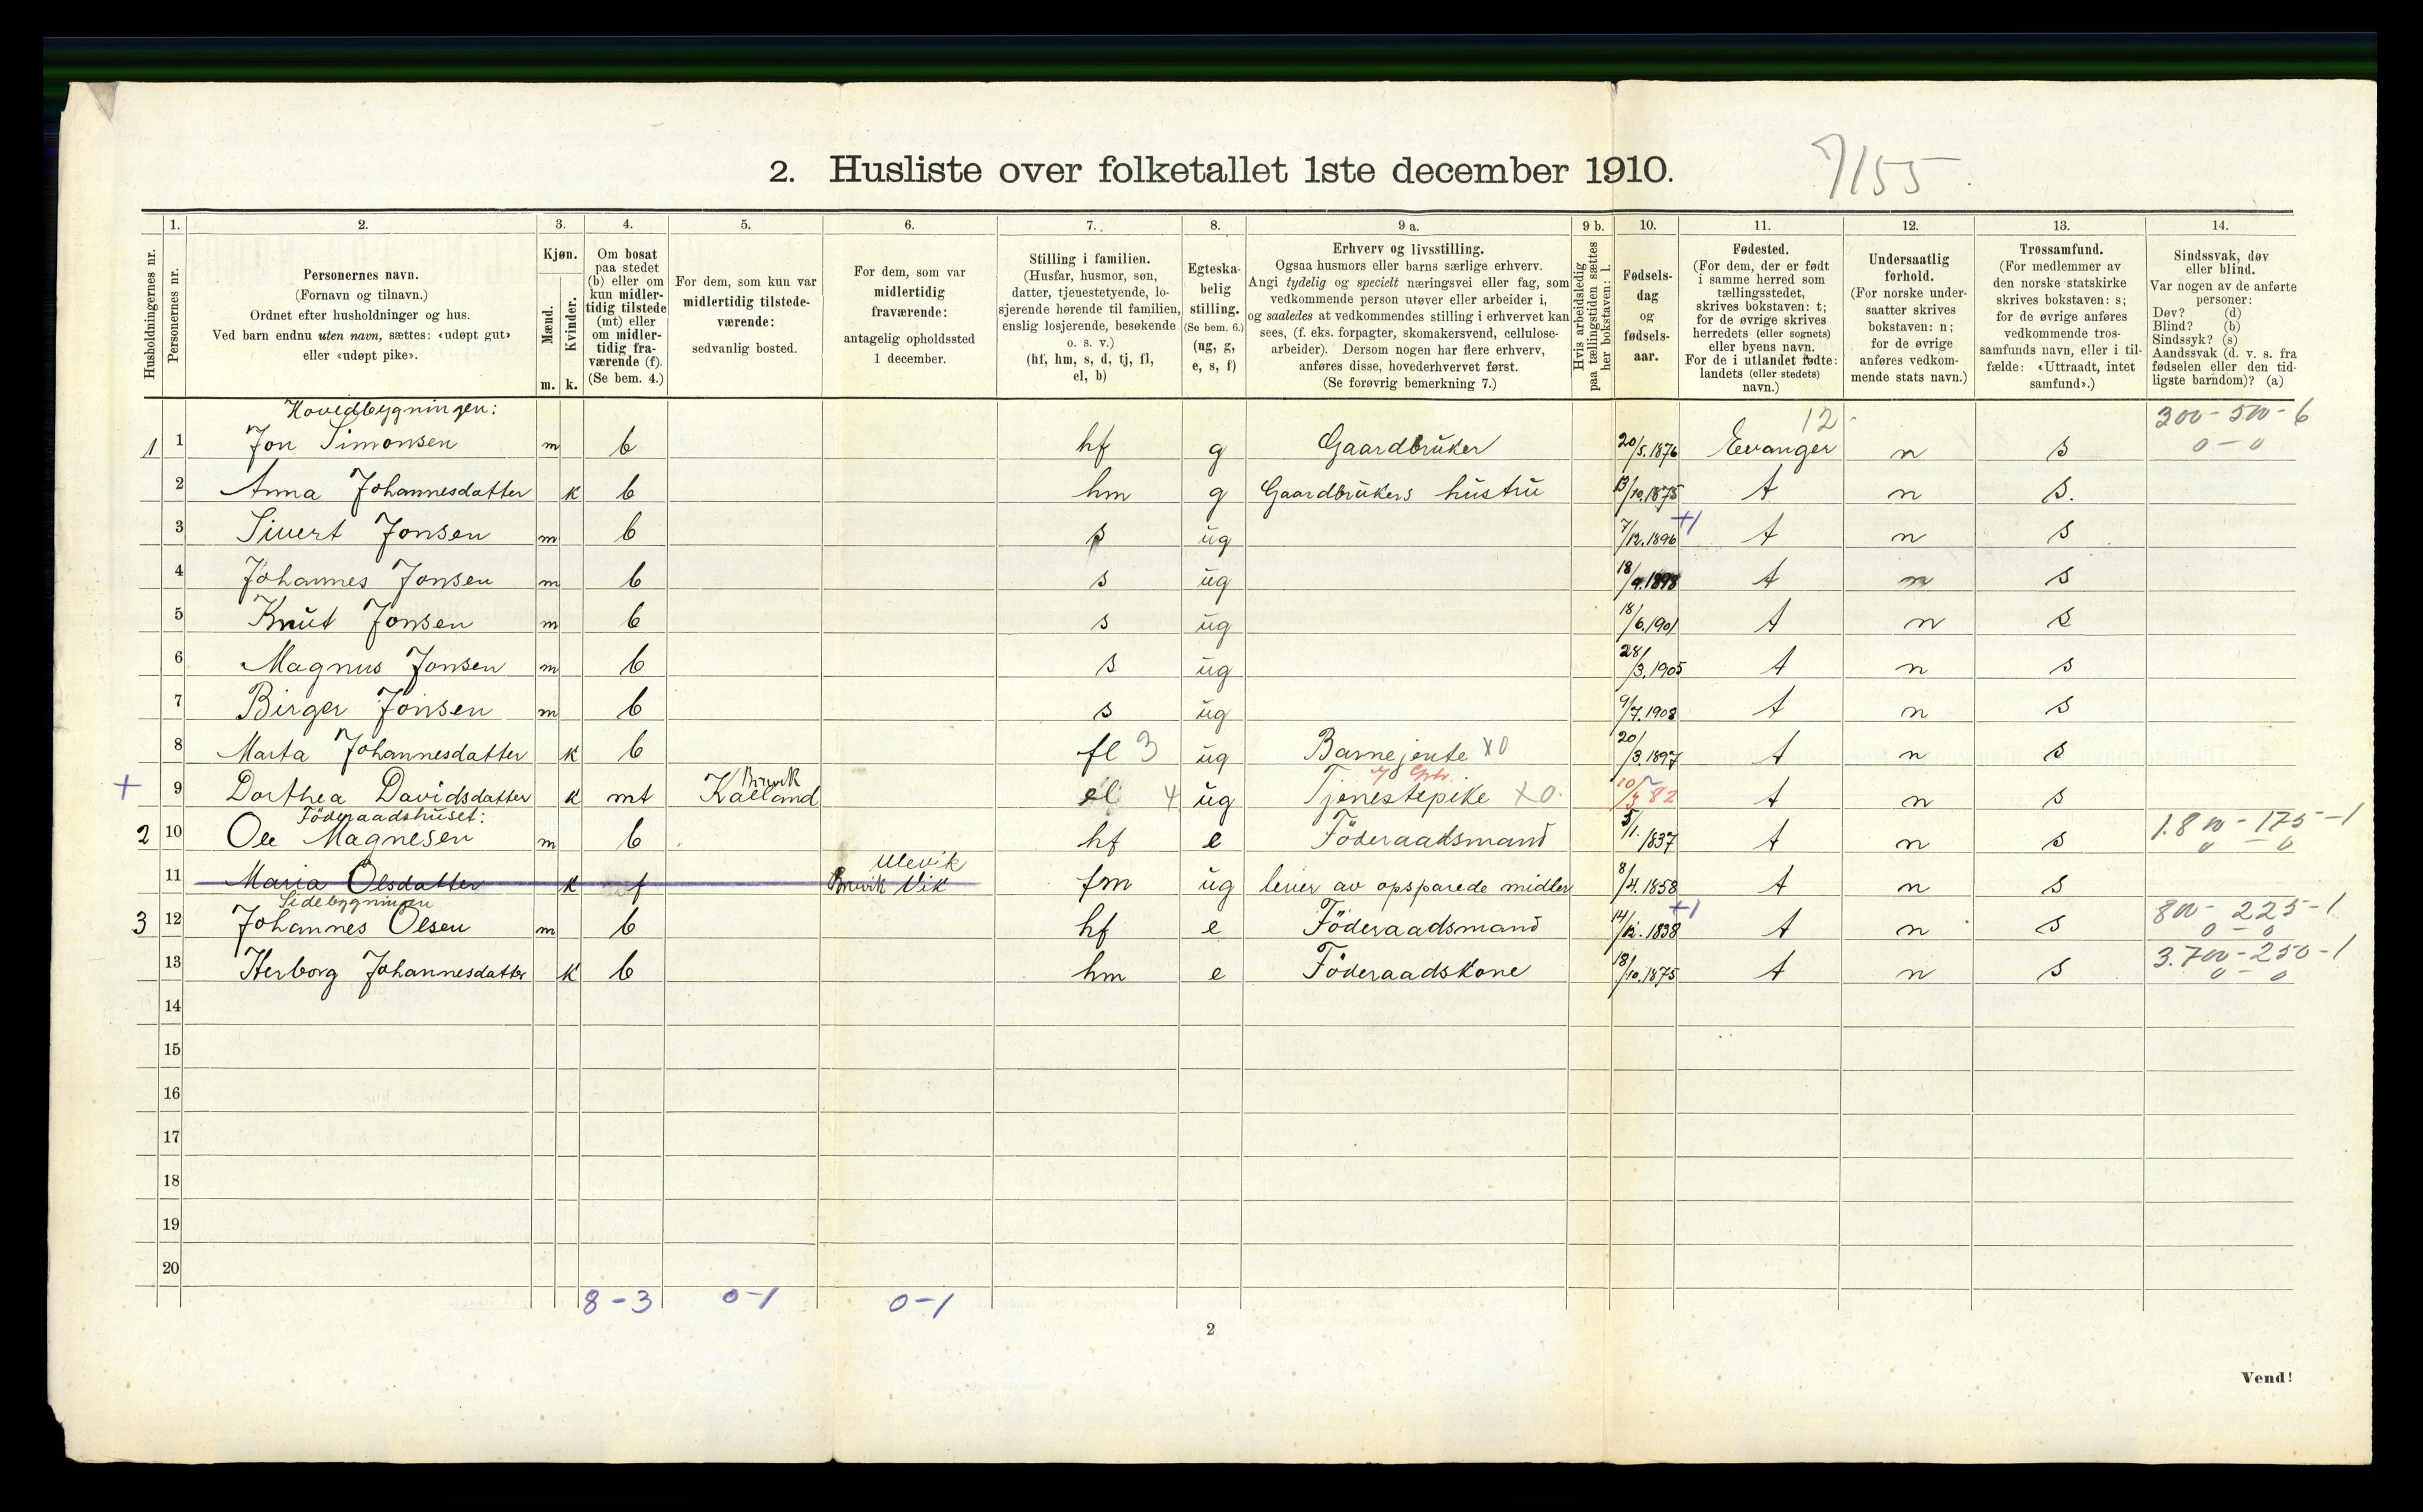 2. Husliste over folketallet 1ste december 1910.
7/55
1. 2. 3. 4. 5. 6. 7. 8. 9 a. 9 b. 10. 11. 12. 13. 14.
Husholdningernes nr.
Personernes nr.
Personernes navn.
(Fornavn og tilnavn.)
Ordnet efter husholdninger og hus.
Ved barn endnu uten navn, sættes: «udøpt gut»
eller «udøpt pike».
Kjøn.
Mænd.
Kvinder.
m. k.
Om bosat
paa stedet
(b) eller om
kun midler-
tidig tilstede
(mt) eller
om midler-
tidig fra-
værende (f).
(Se bem. 4.)
For dem, som kun var
midlertidig tilstede-
værende:
sedvanlig bosted.
For dem, som var
midlertidig
fraværende:
antagelig opholdssted
1 december.
Stilling i familien.
(Husfar, husmor, søn,
datter, tjenestetyende, lo-
sjerende hørende til familien,
enslig losjerende, besøkende
o. s. v.)
(hf, hm, s, d, tj, fl,
el, b)
Egteska-
belig
stilling.
(Se bem. 6.)
(ug, g,
e, s, f)
Erhverv og livsstilling.
Ogsaa husmors eller barns særlige erhverv.
Angi tydelig og specielt næringsvei eller fag, som
vedkommende person utøver eller arbeider i,
og saaledes at vedkommendes stilling i erhvervet kan
sees, (f. eks. forpagter, skomakersvend, cellulose-
arbeider). Dersom nogen har flere erhverv,
anføres disse, hovederhvervet først.
(Se forøvrig bemerkning 7.)
Hvis arbeidsledig
paa tællingstiden sættes
her bokstaven: l.
Fødsels-
dag
og
fødsels-
aar.
Fødested.
(For dem, der er født
i samme herred som
tællingsstedet,
skrives bokstaven: t;
for de øvrige skrives
herredets (eller sognets)
eller byens navn.
For de i utlandet fødte:
landets (eller stedets)
navn.)
Undersaatlig
forhold.
(For norske under-
saatter skrives
bokstaven: n;
for de øvrige
anføres vedkom-
mende stats navn.)
Trossamfund.
(For medlemmer av
den norske statskirke
skrives bokstaven: s;
for de øvrige anføres
vedkommende tros-
samfunds navn, eller i til-
fælde: «Uttraadt, intet
samfund».)
Sindssvak, døv
eller blind.
Var nogen av de anførte
personer:
Døv? (d)
Blind? (b)
Sindssyk? (s)
Aandssvak (d. v. s. fra
fødselen eller den tid-
ligste barndom)? (a)
Hovedbygningen: 12 300-500-6
1 1 Jon Simonsen m b hf g Gaardbruker 20/5.1876 Evanger n s 0-0
2 Anna Johannesdatter k b hm g Gaardbrukers hustru 13/10.1875 t n s.
3 Sivert Jonsen m b s ug 7/12.1896 +1 t n s
4 Johannes Jonsen m b s ug 18/9.1898 t n s
5 Knut Jonsen m b s ug 18/6.1901 t n s
6 Magnus Jonsen m b s ug 28/3.1905 t n s
7 Birger Jonsen m b s ug 9/7.1908 t n s
8 Marta Johannesdatter k b fl 3 ug Barnejente X0 20/3.1897 t n s
Bruvik
+ 9 Dorthea Davidsdatter k mt Kalland el 4 ug Tjenestepike X0. 10/3 82 t n s
Föderaadshuset: 1.800-175-1
2 10 Ole Magnesen m b hf e Föderaadsmand 5/1.1837 t n s 0-0
Ulevik
11 Maria Olsdatter k f Bruvik Vik fm ug lever av opsparede midler 8/4.1858 t n s
Sidebygningen +1 800-225-1
3 12 Johannes Olsen m b hf e Föderaadsmand 14/12.1838 t n s 0-0
3.700-250-1
13 Herborg Johannesdatter k b hm e Föderaadskone 18/10.1875 t n s 0-0
14
15
16
17
18
19
20
8-3 0-1 0-1
2
Vend!